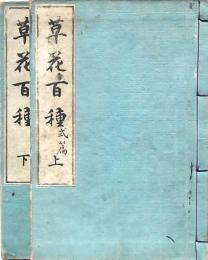 草花百種 弍篇 上
草花百種 下